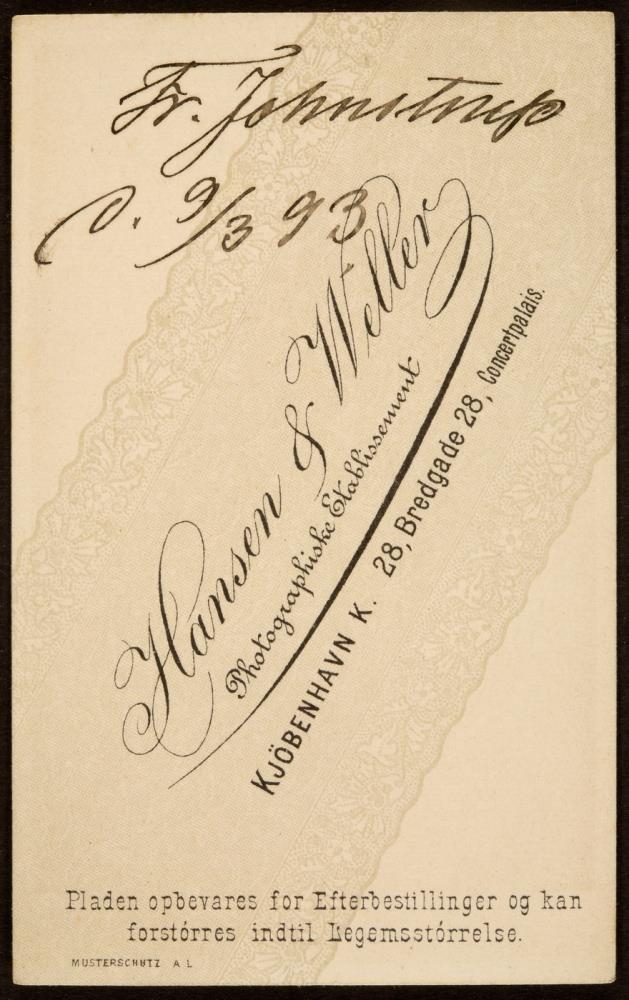 Fr. Johnstrup
d. 9/3 93
Hansen & Weller
Photographiske Etablissement
KJÖBENHAVN K. 28, Bredgade 28, Concertpalais.
Pladen opbevares for Efterbestillinger og kan
forstórres indtil Legemsstórrelse.
MUSTERSCHUTZ A L